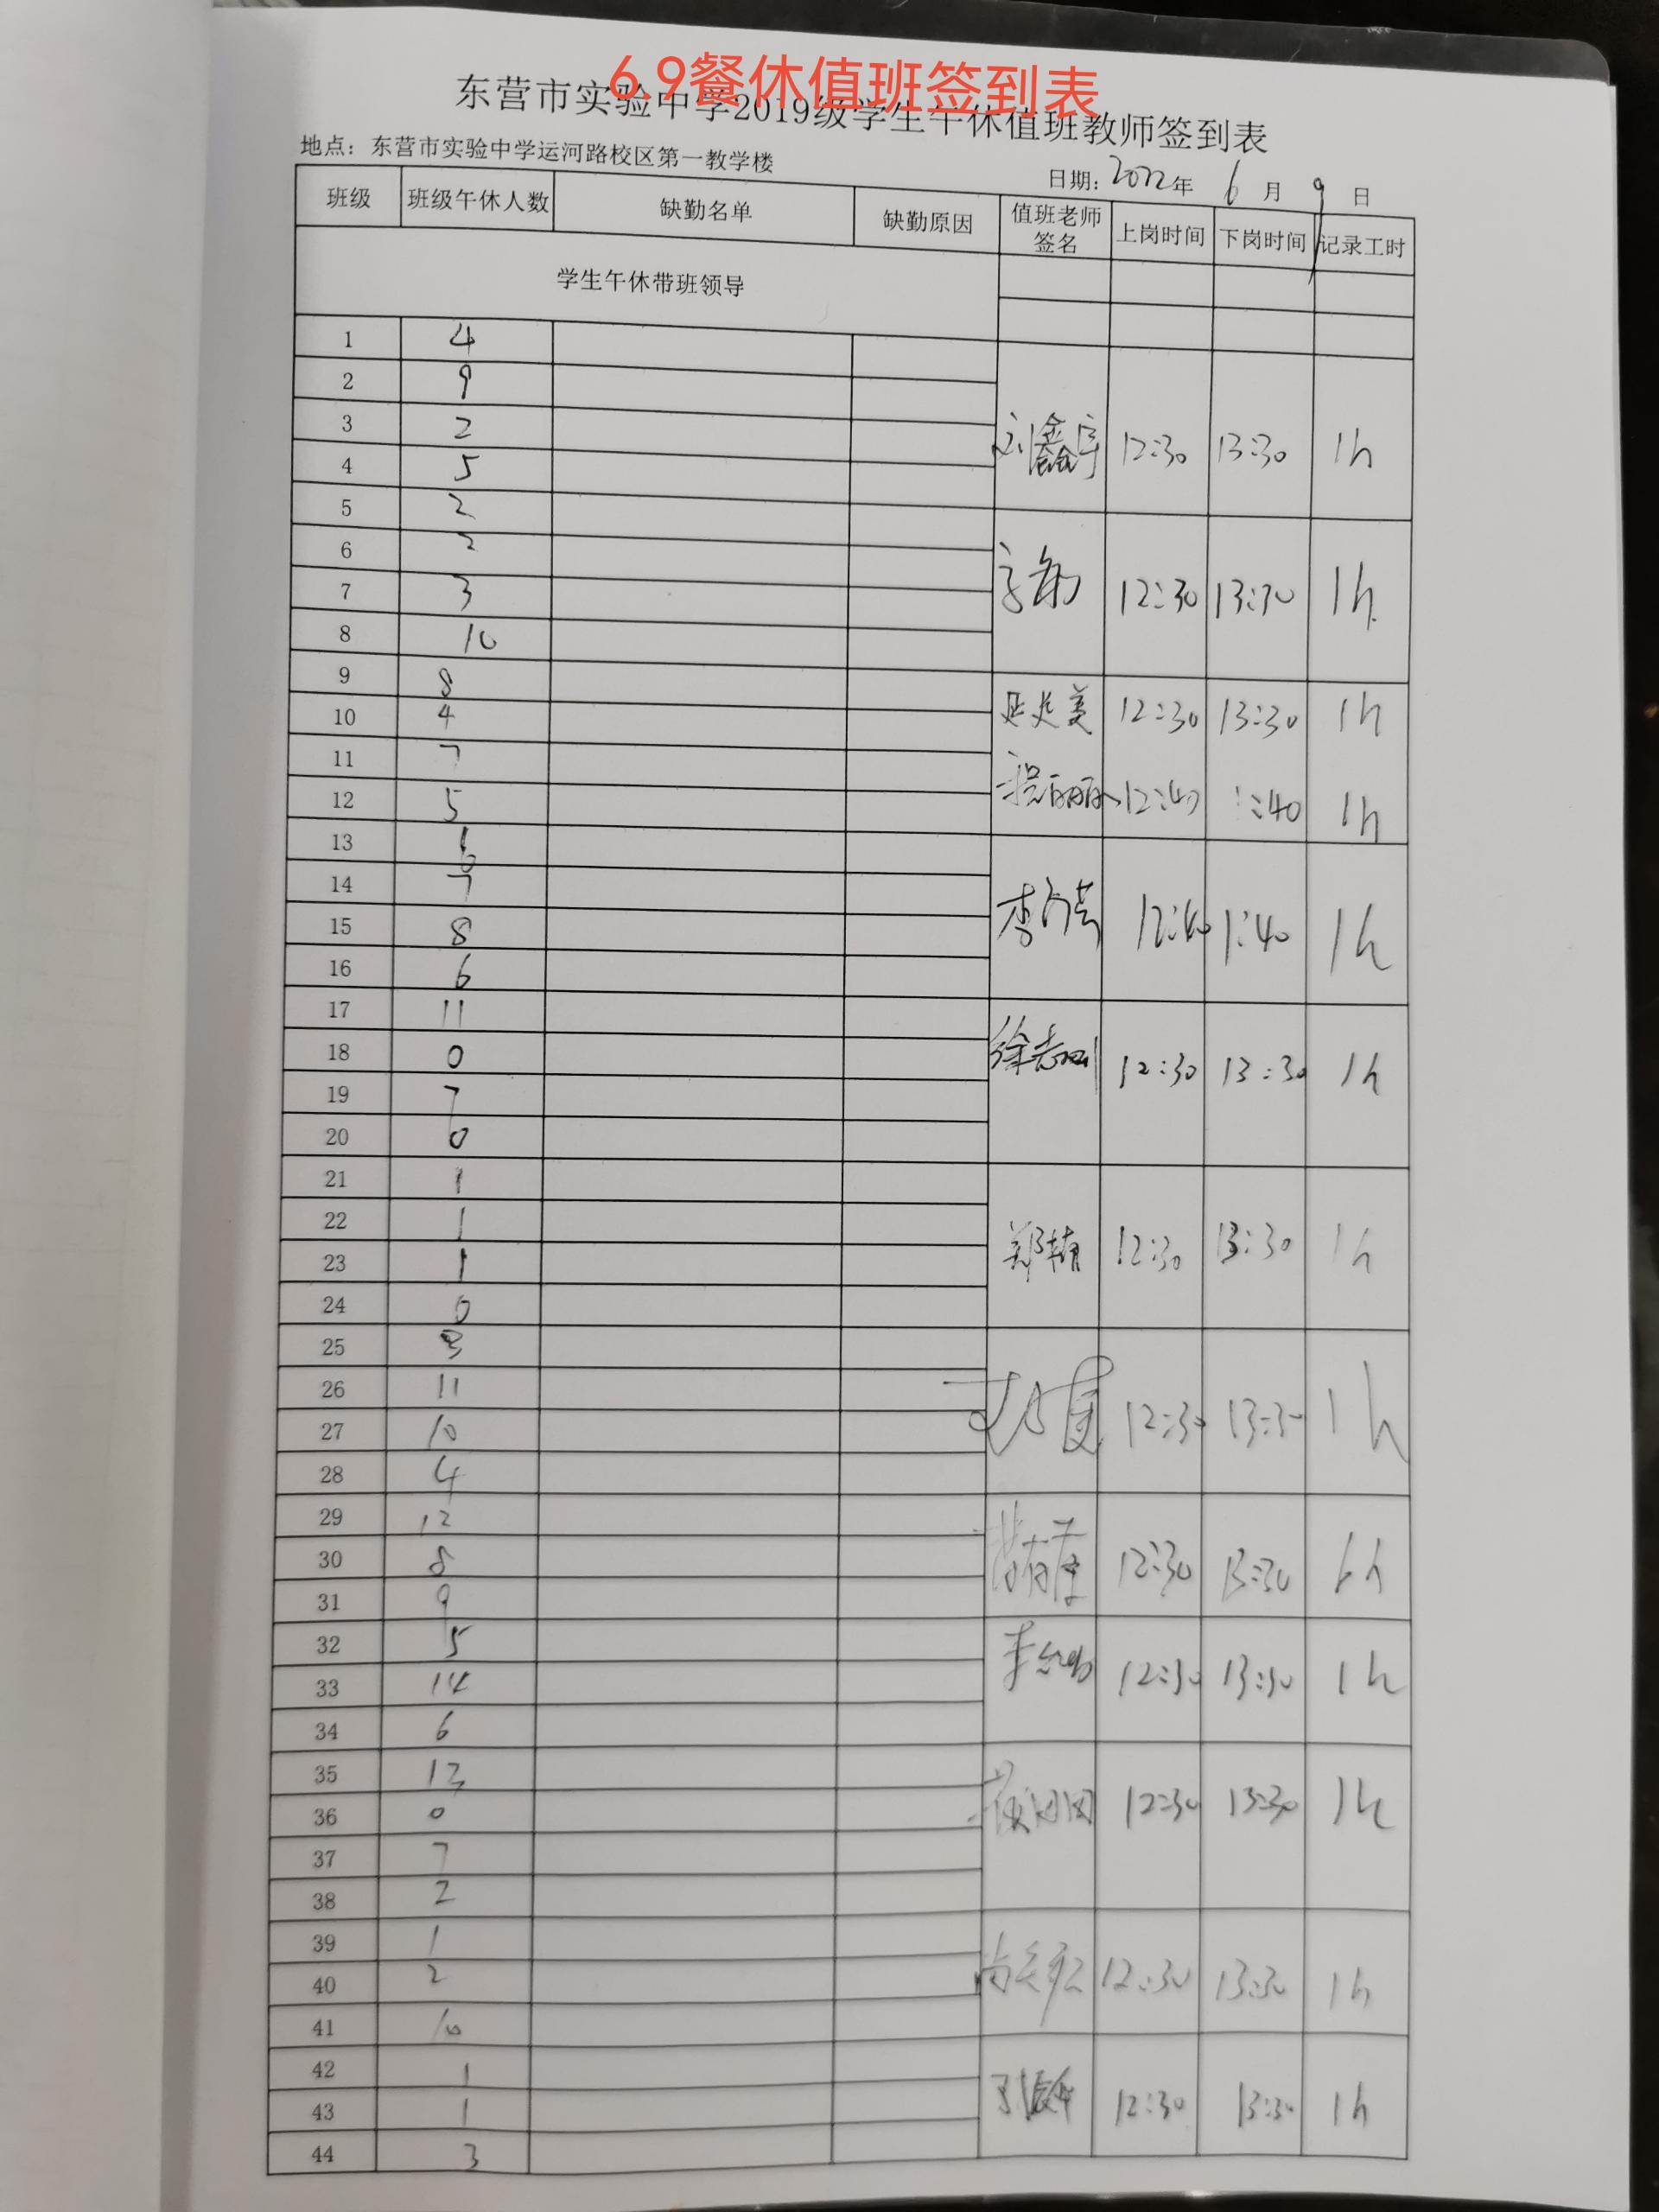 6.9餐休值班签到表
东营市实验中学2019级学生午休值班教师签到表
地点：东营市实验中学运河路校区第一教学楼
日期：2022年 6月 9日
班级 班级午休人数 缺勤名单 缺勤原因 值班老师签名 上岗时间 下岗时间 记录工时
学生午休带班领导
1 4
2 9
3 2 刘鑫宇 12:30 13:30 1h
4 5
5 2
6 2
7 3 12:30 13:30 1h
8 10
9 8
10 4 12:30 13:30 1h
11 7
12 5 程丽丽 12:40 1:40 1h
13 6
14 7
15 8 12:40 1:40 1h
16 6
17 11
18 0 徐志刚 12:30 13:30 1h
19 7
20 0
21 1
22 1
23 1 郑楠 12:30 13:30 1h
24 0
25 3
26 11
27 10 12:30 13:30 1h
28 4
29 12
30 8 12:30 13:30 1h
31 9
32 5
33 14 12:30 13:30 1h
34 6
35 13
36 0 12:30 13:30 1h
37 7
38 2
39 1
40 2 12:30 13:30 1h
41 10
42 1
43 1 12:30 13:30 1h
44 3